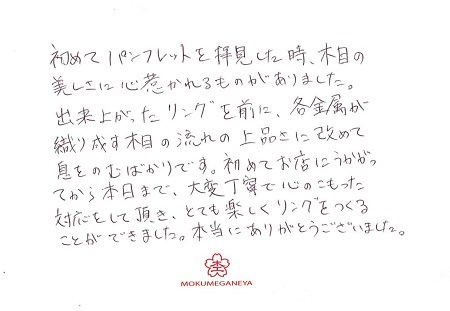 初めてパンフレットを拝見した時、木目の
美しさに心惹かれるものがありました。
出来上がったリングを前に、各金属が
織り成す木目の流れの上品さに改めて
息をのむばかりです。初めてお店にうかがっ
てから本日まで、大変丁寧で心のこもった
対応をして頂き、とても楽しくリングをつくる
ことができました。本当にありがとうございました。
MOKUMEGANEYA